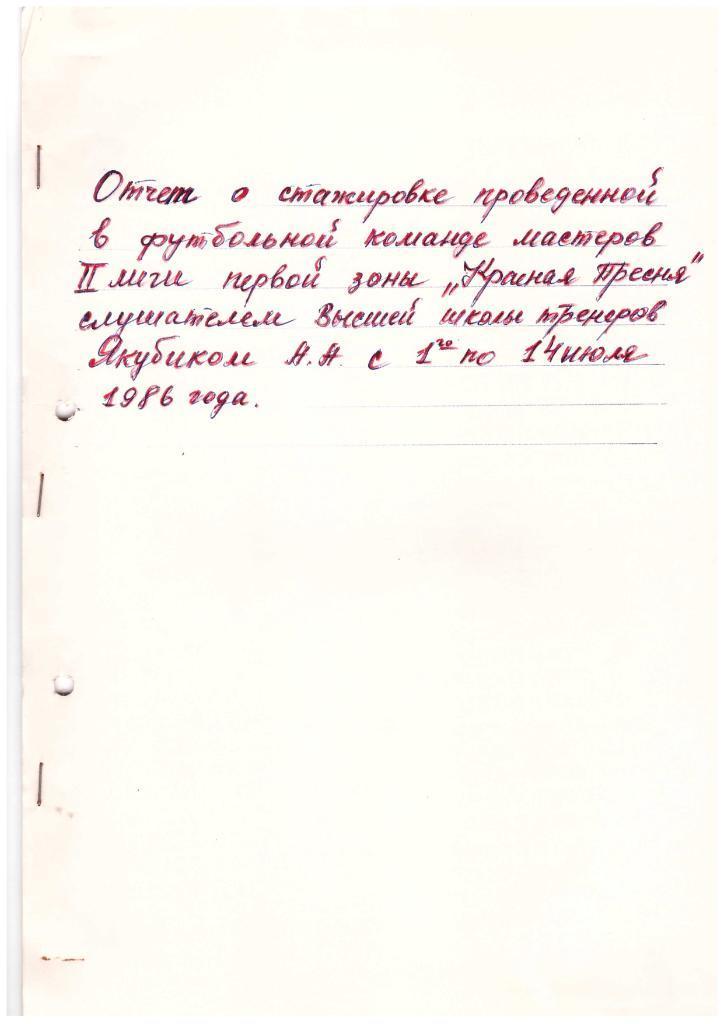 Отчет о стажировке проведенной
в футбольной команде мастеров
II лиги первой зоны „Красная Пресня"
слушателем Высшей школы тренеров
Якубиком А.А. с 1го по 14 июля
1986 года.